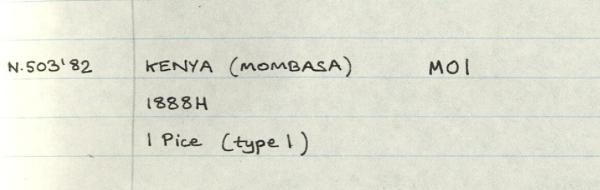 N.503'82 KENYA (MOMBASA) MO1
1888H
1 Pice (type 1)